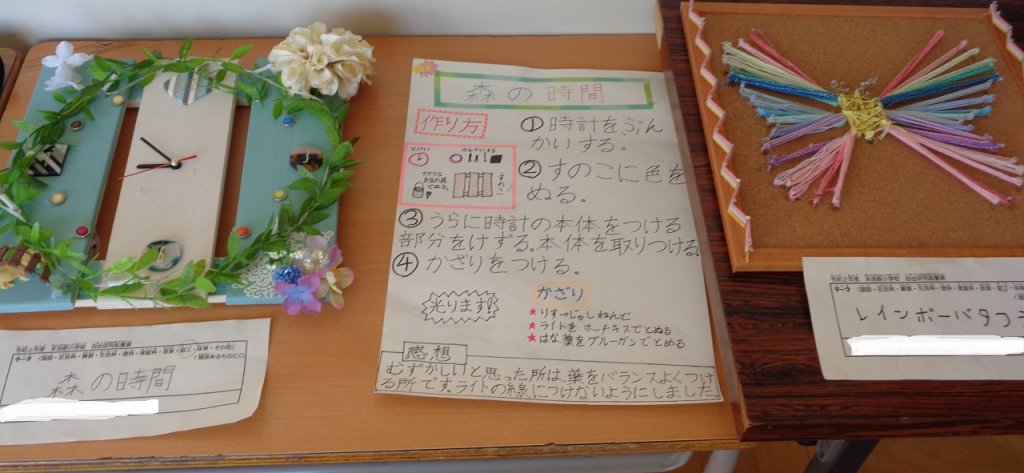 森の時間
作り方
①時計をぶん
かいする。
②すのこに色を
ぬる。
③うらに時計の本体をつける
部分をけずる。本体を取りつける。
④かざりをつける。
光ります!
かざり
★りすっじゅしねんど
★ライトをホッチキスでとめる
★はな、葉をグルーガンでとめる
感想
むずかしいと思った所は、葉をバランスよくつけ
る所です。ライトの線につけないようにしました。
森の時間
レインボーバタフラ